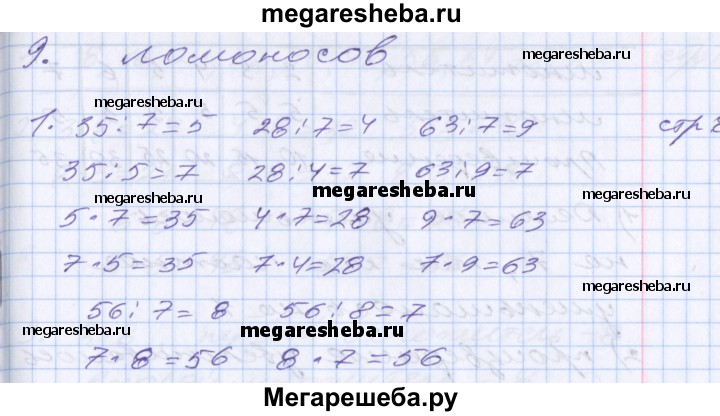 megaresheba.ru
9. ломоносов
megaresheba.ru
megaresheba.ru
1. 35:7=5 28:7=4 63:7=9 стр
35:5=7 28:4=7 63:9=7
megaresheba.ru
megaresheba.ru
megaresheba.ru
5·7=35 4·7=28 9·7=63
7·5=35 7·4=28 7·9=63
56:7=8 56:8=7
megaresheba.ru
megaresheba.ru
megaresheba.ru
7·8=56 8·7=56
Мегарешеба.ру